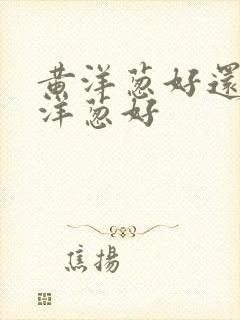 黄洋葱好還
洋葱好
焦揚